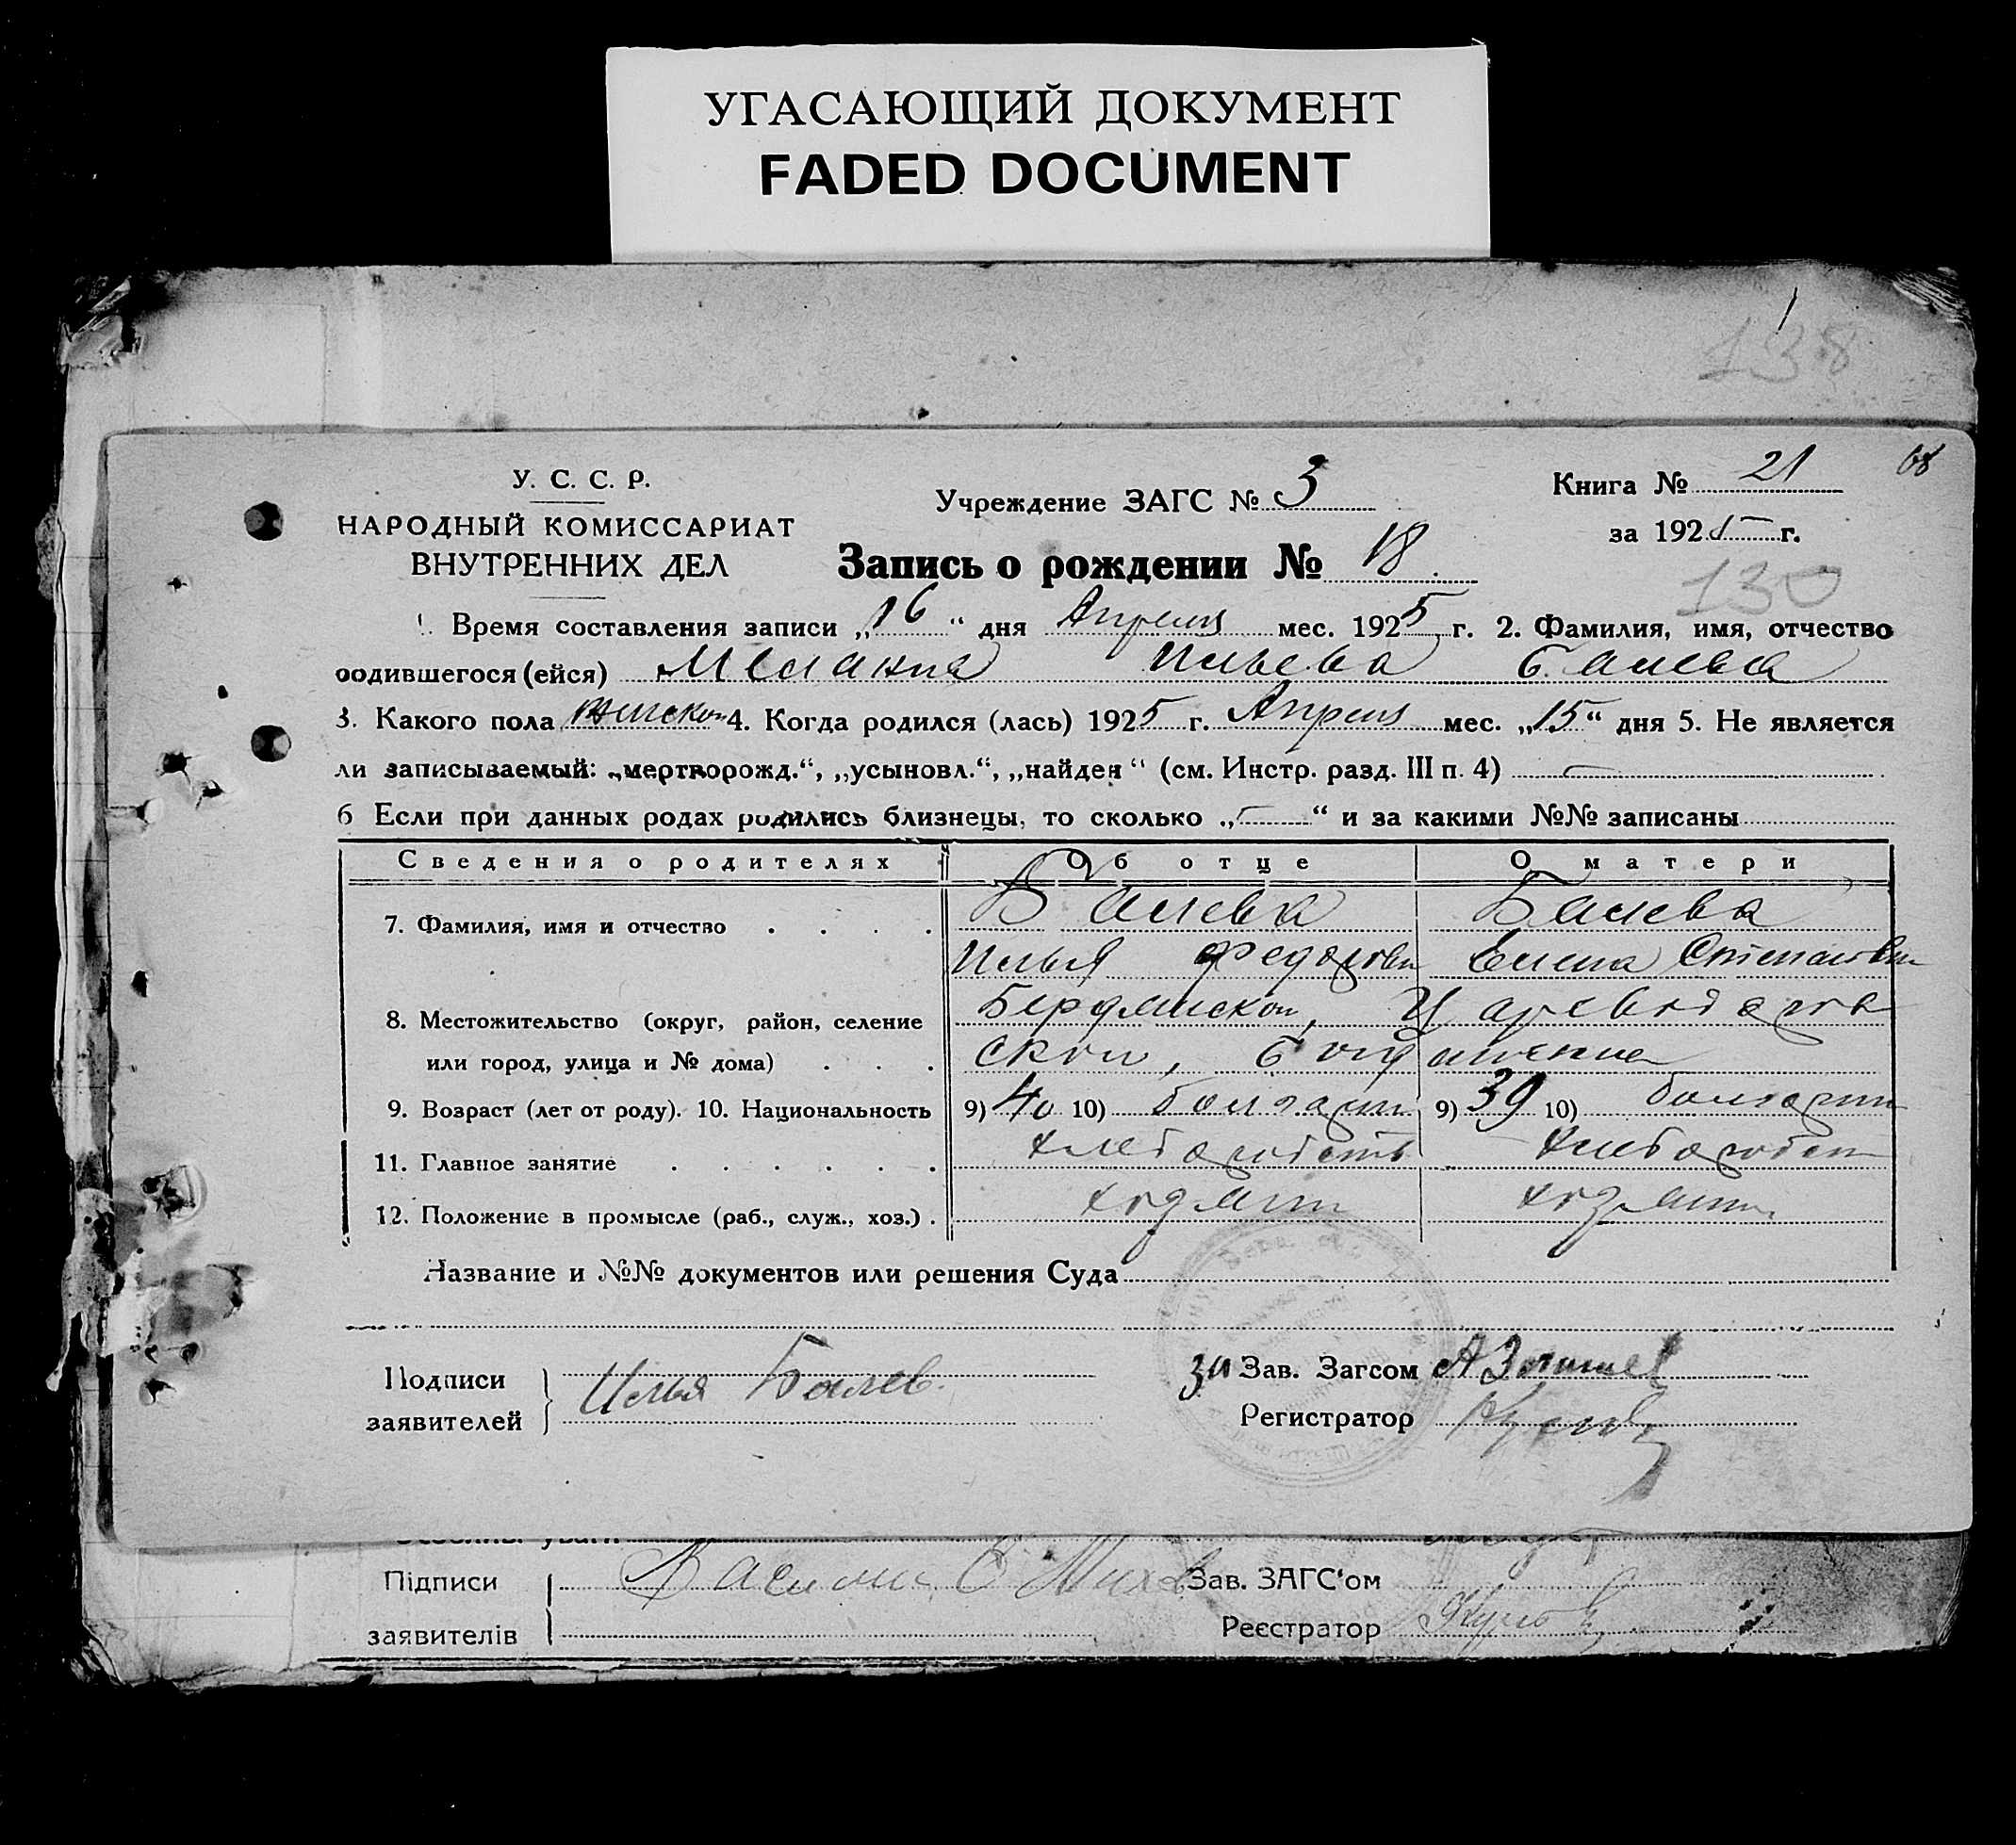 УГАСАЮЩИЙ ДОКУМЕНТ
FADED DOCUMENT
138
У. С. С. Р.
НАРОДНЫЙ КОМИССАРИАТ
ВНУТРЕННИХ ДЕЛ
Учреждение ЗАГС № 3
Книга № 21
68
за 1925 г.
Запись о рождении № 18
130
1. Время составления записи „16“ дня Апреля мес. 1925 г. 2. Фамилия, имя, отчество
родившегося (ейся) Мелания Ильева Балева
3. Какого пола женскои 4. Когда родился (лась) 1925 г. Апреля мес. „15“ дня 5. Не является
ли записываемый: „мертворожд.“, „усыновл.“, „найден“ (см. Инстр. разд. III п. 4) —
6 Если при данных родах родились близнецы, то сколько „—“ и за какими №№ записаны
Сведения о родителях Об отце О матери
7. Фамилия, имя и отчество Балева Балева
Илья Федорови Елена Степанови
8. Местожительство (округ, район, селение Бердянскои, Цареводаров
или город, улица и № дома) скои,
9. Возраст (лет от роду). 10. Национальность 9) 40 10) болгарин 9) 39 10) болгарин
11. Главное занятие
12. Положение в промысле (раб., служ., хоз.)
Название и №№ документов или решения Суда
Подписи
заявителей
Илья Балев.
за Зав. Загсом
Регистратор
Підписи
заявителів
Зав. ЗАГС‘ом
Реєстратор